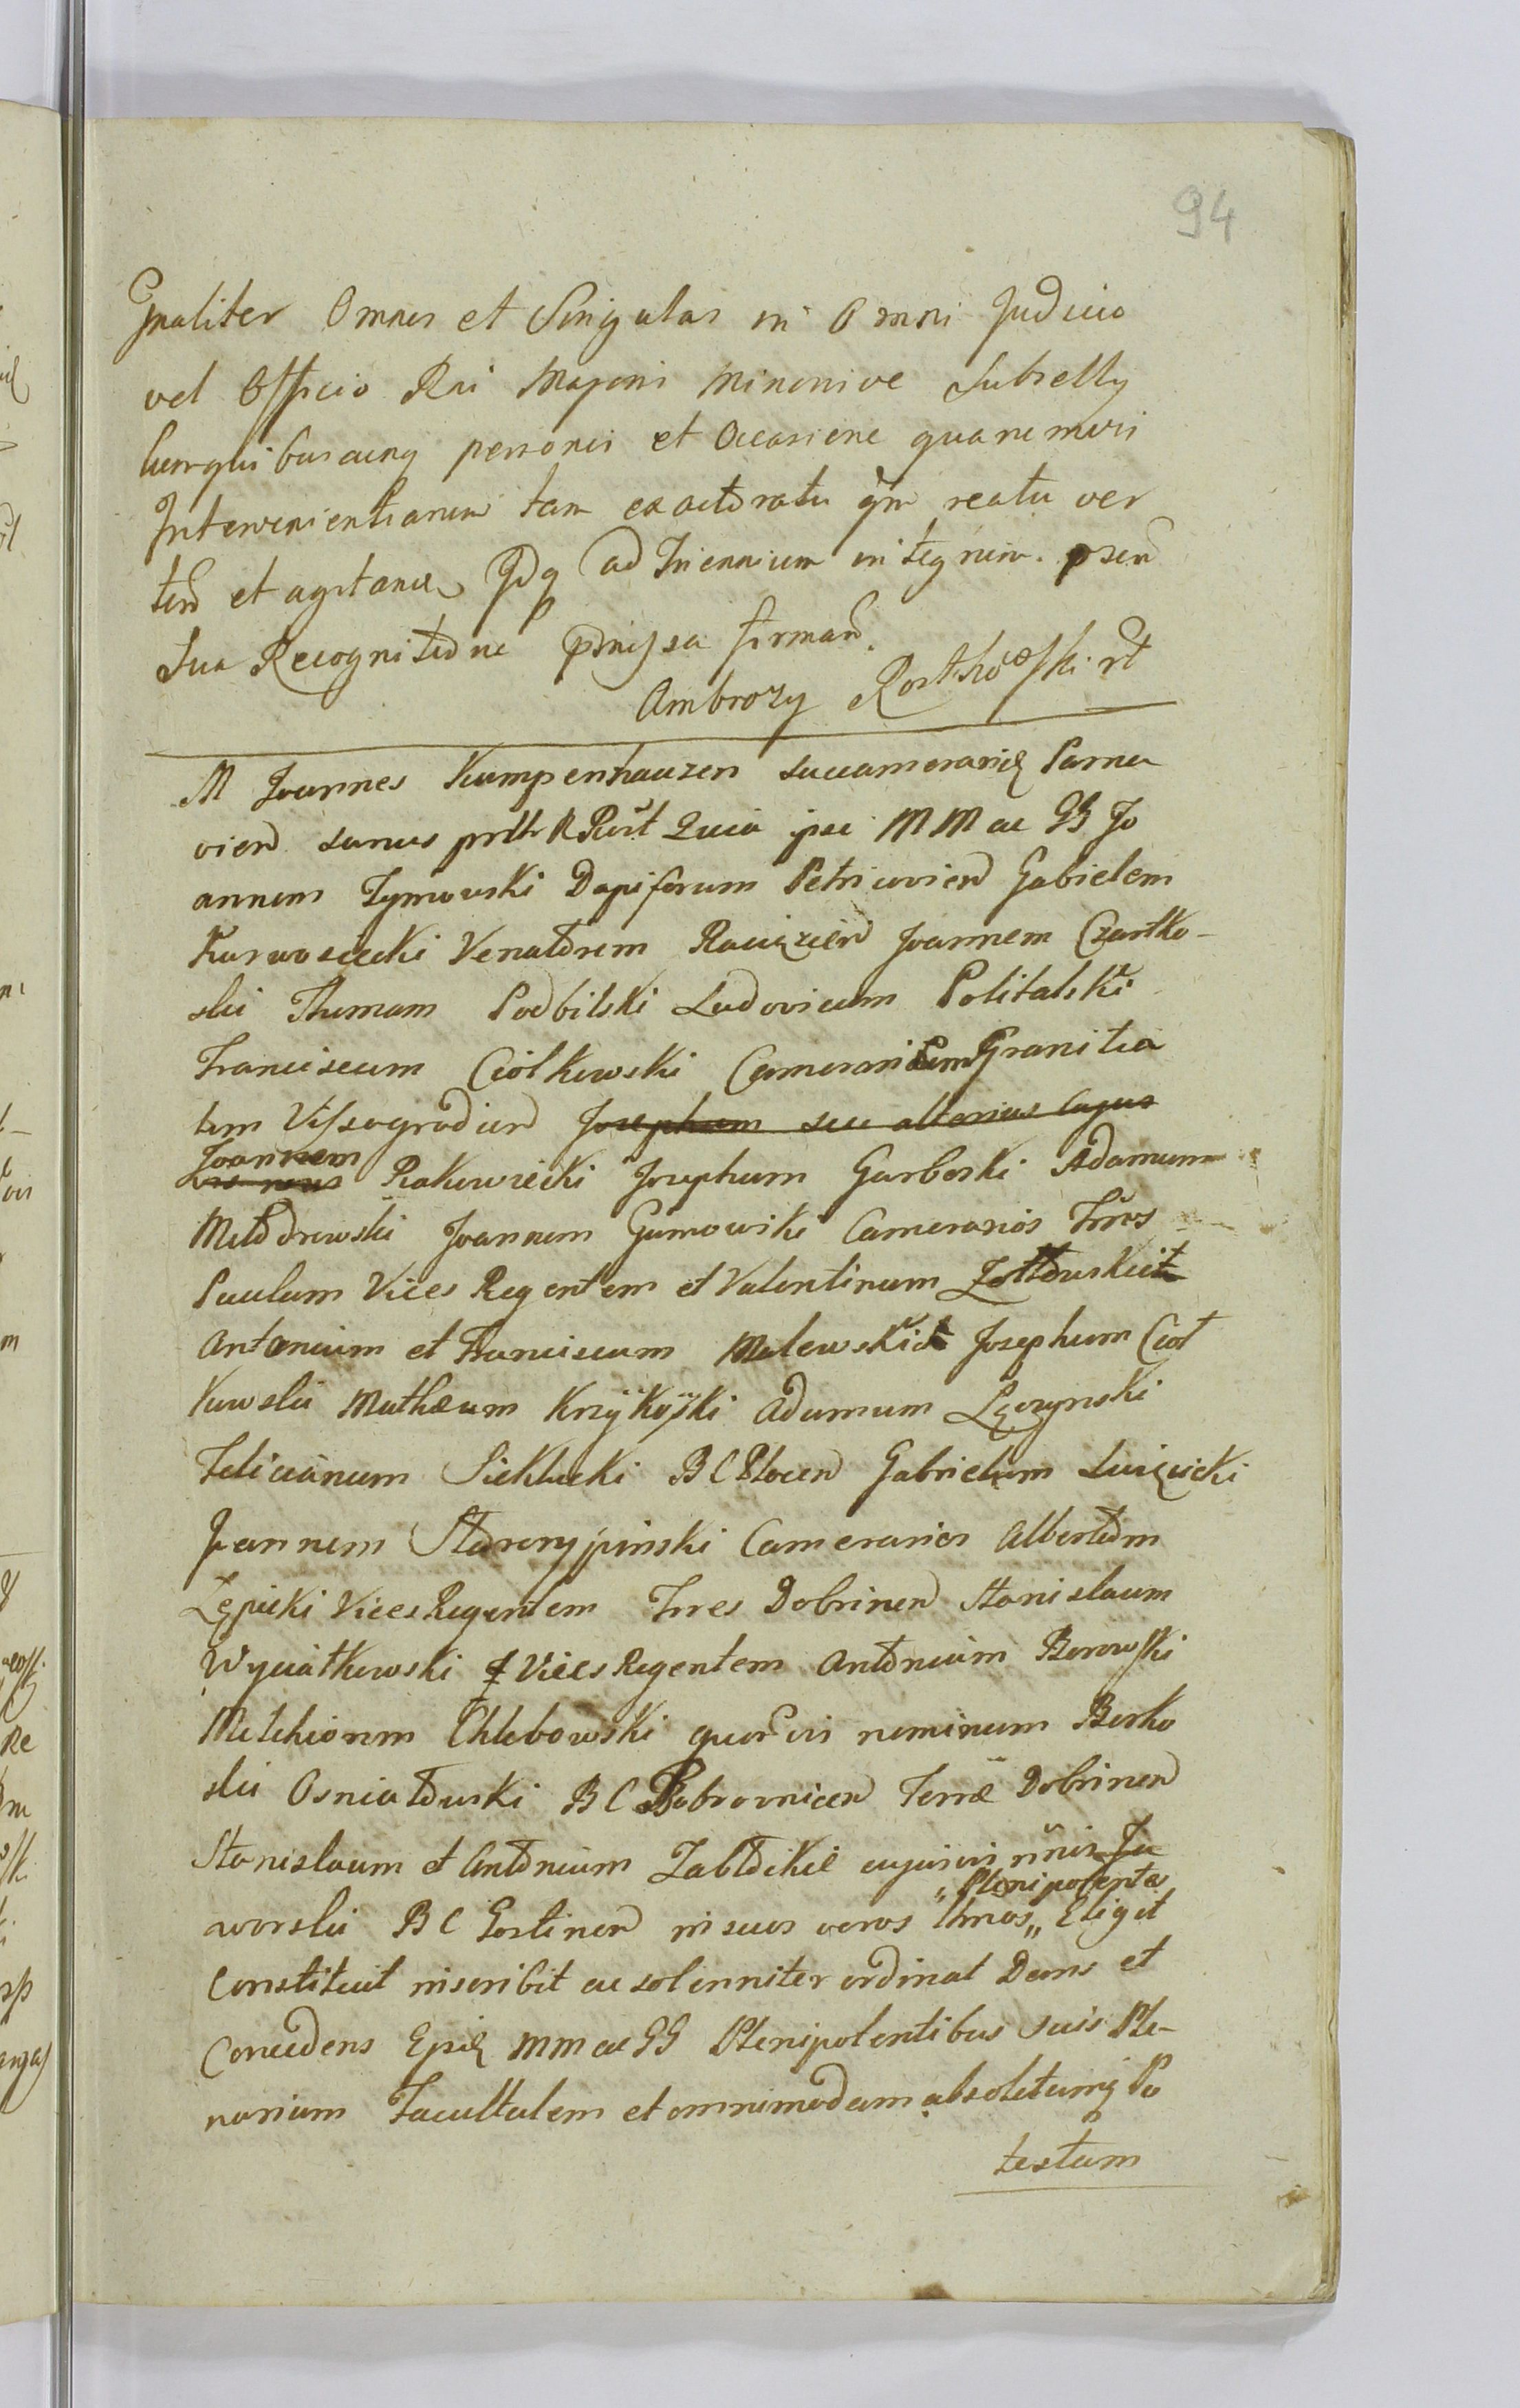 94
Gnaliter Omnes et Singulas in Omni Judicio
vel Officio Rni Majoris Minorisve Subselly
cumquibuscunq personis et Occasione quanemvis
Intervenientianum tam ex actoratu qm reatu ver
tend et agitana Idq ad Triennium integrum psen
Sua Recognitione pmissa firmand.
Ambrozy Rostkoski
M Joannes Kumpenhauzen Succamerarig Parna
vien sanus Quia ipse MM ac GG Jo
annem Tymowski Dapiferum Petricovien Gabielem
Karwosiecki Venatorem Raciązien Joannem Czartko-
ski Thomam Podbilski Ludovicum Politalski
Franciscum Ciołkowski Camerarium Granitia
lem Vissogradien Josephum seu alterius cujus
Joannem
Rakowiecki Josephum Garboski Adamum
Młodzewski Joannem Gumowski Camerarios Trros
Paulum Vices Regentem et Valentinum Zołtowskie
Antonium et Franciscum Malewskie Josephum Cioł
kowski Mathæum Krzÿkoski Adamum Lączynski
Felicianum Siekłucki BC Plocen Gabrielem Luięwicki
Joannem Starorypinski Camerarios Albertum
Łępicki Vices Regentem Trres Dobrinen Stanislaum
Wyciatkowski Vices Regentem Antonium Borowski
Melchiorem Chlebowski quorvis nominum Borko
ski Osniałowski BC Bobrownicen Terræ Dobrinen
Stanislaum et Antonium Zabłockie cujusvis nnis Ja
"Plenipotentes
worski BC Gostinen in suos veros lttmos„ Eligit
Constituit inscribit ac solenniter ordinat Dans et
Concedens Epsis MM ac GG Plenipotentibus suis Ple-
nariam Facultatem et omnimodam absolutamq Po
testam